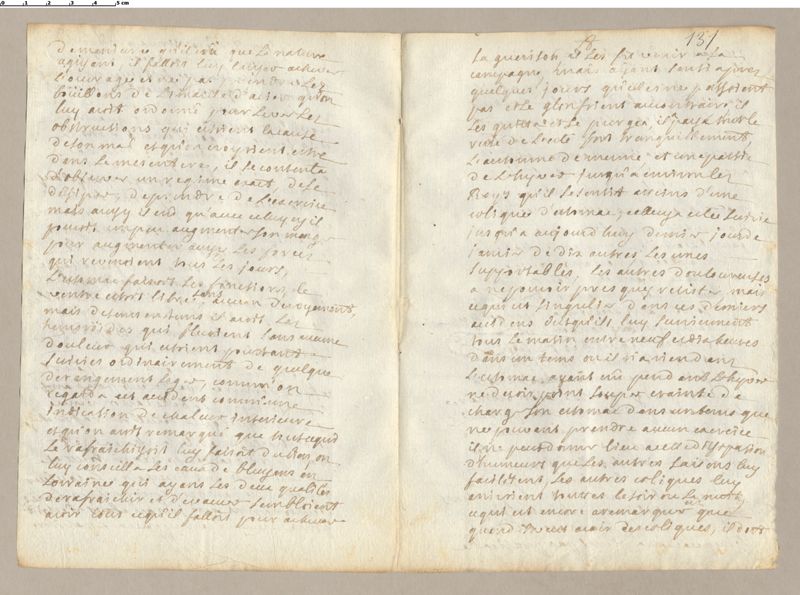 agissant, il falloit luy laisser achever
l'ouvrage
bouillons de
luy avoit ordonné pour lever les
obstructions qui etoient la cause
de son mal et qu'on croyoit estre
dans le mesentere, il se contenta
d'observer un regime exact, de se
dissiper, de prendre de l'exercice
mais aussy il vid qu'avec cela il
pouvoit un peu augmenter son manger
pour augmenter aussy les forces
qui revenoient tous les jours,
l'estomac faisoit ses fonctions, le
ventre etoit libre sans aucun devoyement,
mais de tems en tems il avoit des
hemorroides qui fluoient sans aucune
douleur qui etoient pourtant
suivies ordinairement de quelque
derangement leger, comme on
regarda cet accident comme une
indication de chaleur interieure
et qu'on avoit remarqué que tout ce qui
le rafraichissoit luy faisoit du bien on
luy conseilla les eaux de Blussans en
Lorraine qui ayant les deux qualités
de rafraichir et d'evacuer sembloient
avoir tout ce qu'il falloit pour achever
131
la guerison, il les fit venir a la
campagne, mais ayant senti apres
quelques jours qu'elles ne passoient
pas et le gonfloient au contraire, il
les quitta et se purgea, il passa tout le
reste de l'esté fort tranquillement,
l'automne de mesme et une partie
de l'hyver jusqu'a environ les
Roys qu'il se sentit atteint d'une
colique d'estomac, celle cy a eté suivie
jusqu'a aujourd'huy dernier jour de
janvier de dix autres les unes
supportables, les autres douloureuses
a ne pouvoir presque y resister, mais
ce qui est singulier dans ces derniers
accidens c'est qu'ils luy surviennent
tous le matin entre neuf et dix heures
dans un tems ou il n'a rien dans
l'estomac, ayant
ne
charger son estomac dans un tems que
ne pouvant prendre aucun exercice
il ne peut donner lieu a cette dissipation
d'humeurs que les autres saisons luy
facilitent, les autres coliques luy
etoient toutes le soir ou la nuit,
ce qui est encore a remarquer que
quand il veut avoir des coliques, il doit